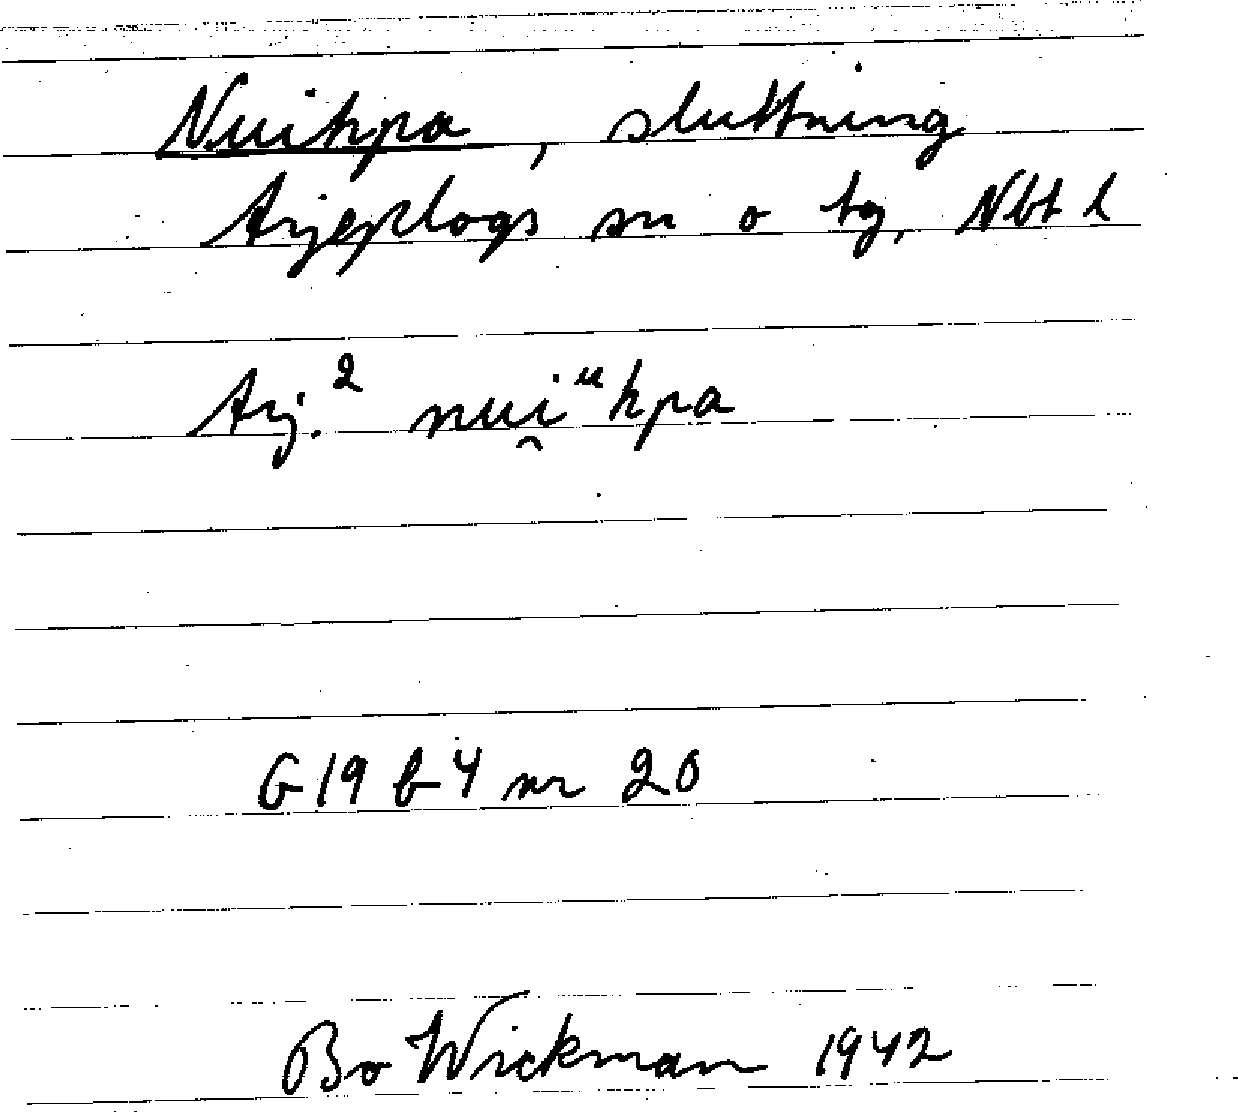 Nuihpa, sluttning
Arjeplogs sn o tg, Nbt l
Arj.² nui̯ᵘhpa
G 19 b 4 nr 20
Bo Wickman 1942